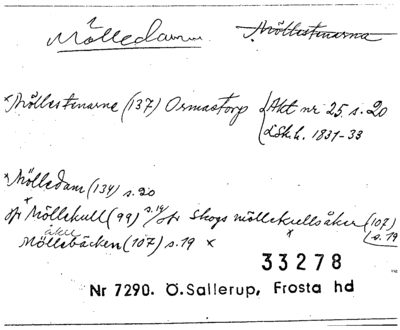 Mölledam Möllestenarne
×Möllestenarne (137) Ormastorp {Akt nr 25. s. 20
L.Sk.h. 1831-33
×Mölledam (134) s. 20
× Möllekull (99) s.19 Skogs möllekullsåker (107) s. 19
åker
Möllebäcken (107) s. 19 ×
33278
Nr 7290. Ö.Sallerup, Frosta hd